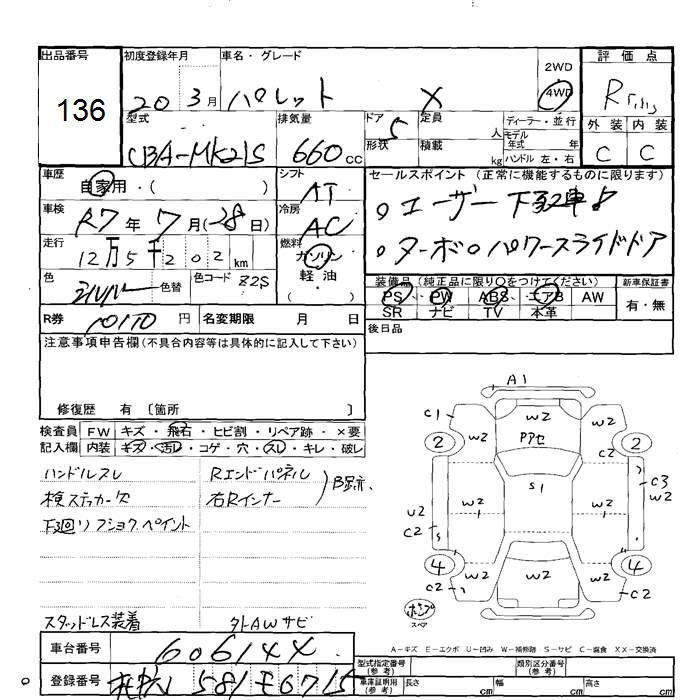 出品番号 初度登録年月 車名・グレード 2WD 評価点
136 20 3月 パレット X 4WD R
型式 排気量 ドア 5 定員 人 ディーラー・並行 外装 内装
CBA-MK21S 660cc 形状 積載 kg モデル年式 年 ハンドル 左・右 C C
車歴 自家用・( ) シフト AT セールスポイント (正常に機能するものに限ります)
車検 R7年7月(-28日) 冷房 AC ○ユーザー下取車!
走行 12万5千202km 燃料 ガソリン ○ターボ○パワースライドドア
色 シルバー 色替 色コード Z2S 軽油 装備品(純正品に限り○をつけてください) 新車保証書
PS PW ABS エアB AW 有・無
R券 10170円 名変期限 月 日 SR ナビ TV 本革
注意事項申告欄(不具合内容等は具体的に記入して下さい) 後日品
修復歴 有 [箇所 ]
検査員 FW キズ・飛石・ヒビ割・リペア跡・×要
記入欄 内装 キズ・汚レ・コゲ・穴・スレ・キレ・破レ
ハンドルスレ Rエンドパネル
検ステッカー欠 右Rインナー B跡
下廻リフショクペイント
スタッドレス装着 外AWサビ
A1
C1 W2 W2
2 W2 Pアセ C2 2
S1 C3
W2
U2 W2 W2
C2 S
4 W2 W2 W2 4
C2 C2
ポンプ
スペア
A-キズ E-エクボ U-凹み W-補修跡 S-サビ C-腐食 XX-交換済
車台番号 606144 型式指定番号(参考) 類別区分番号(参考)
登録番号 581 6715 車庫証明用(参考) 長さ cm 幅 cm 高さ cm